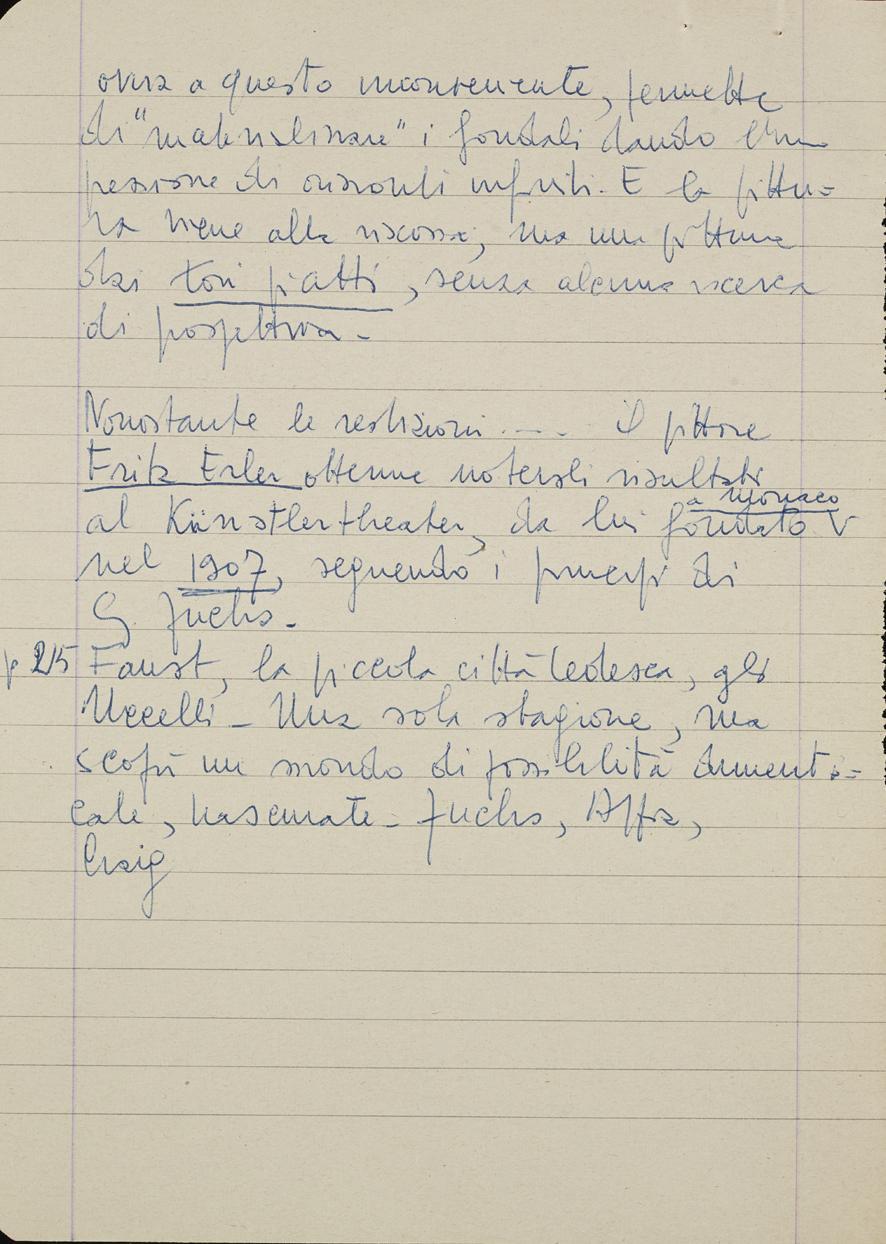 ovvia a questo inconveniente, permette
di "materializzare" i fondali dando l'im
pressione di orizzonti infiniti. E la pittu=
ra viene alla riscossa, ma una pittura
dai toni piatti, senza alcuna ricerca
di prospettiva -
Nonostante le restrizioni .... il pittore
Fritz Erler ottenne notevoli risultati
al Künstlertheater, da lui fondato V a Monaco
nel 1907, seguendo i principi di
G. Fuchs -
p 215 Faust, la piccola città tedesca, gli
Uccelli - Una sola stagione, ma
scoprì un mondo di possibilità dimenti=
cate, - Fuchs, Appia,
Craig